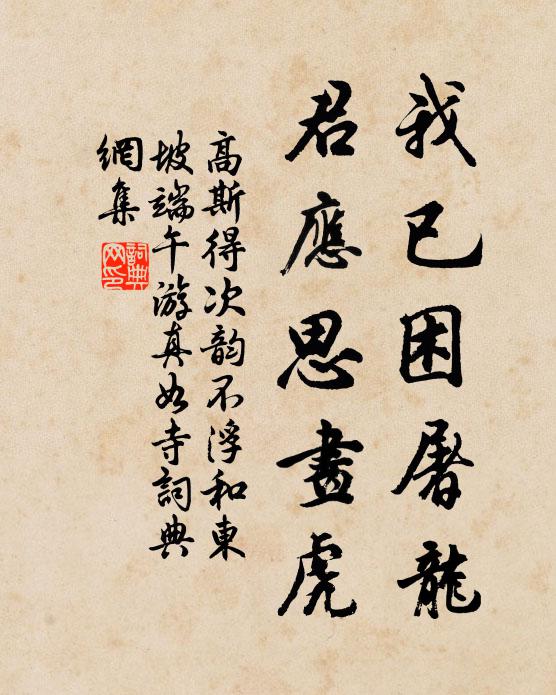 我已困屠龍
君應思畫虎
高斯得次韵不浮和東
坡端午游真如寺詞典
網集
詞典
网印